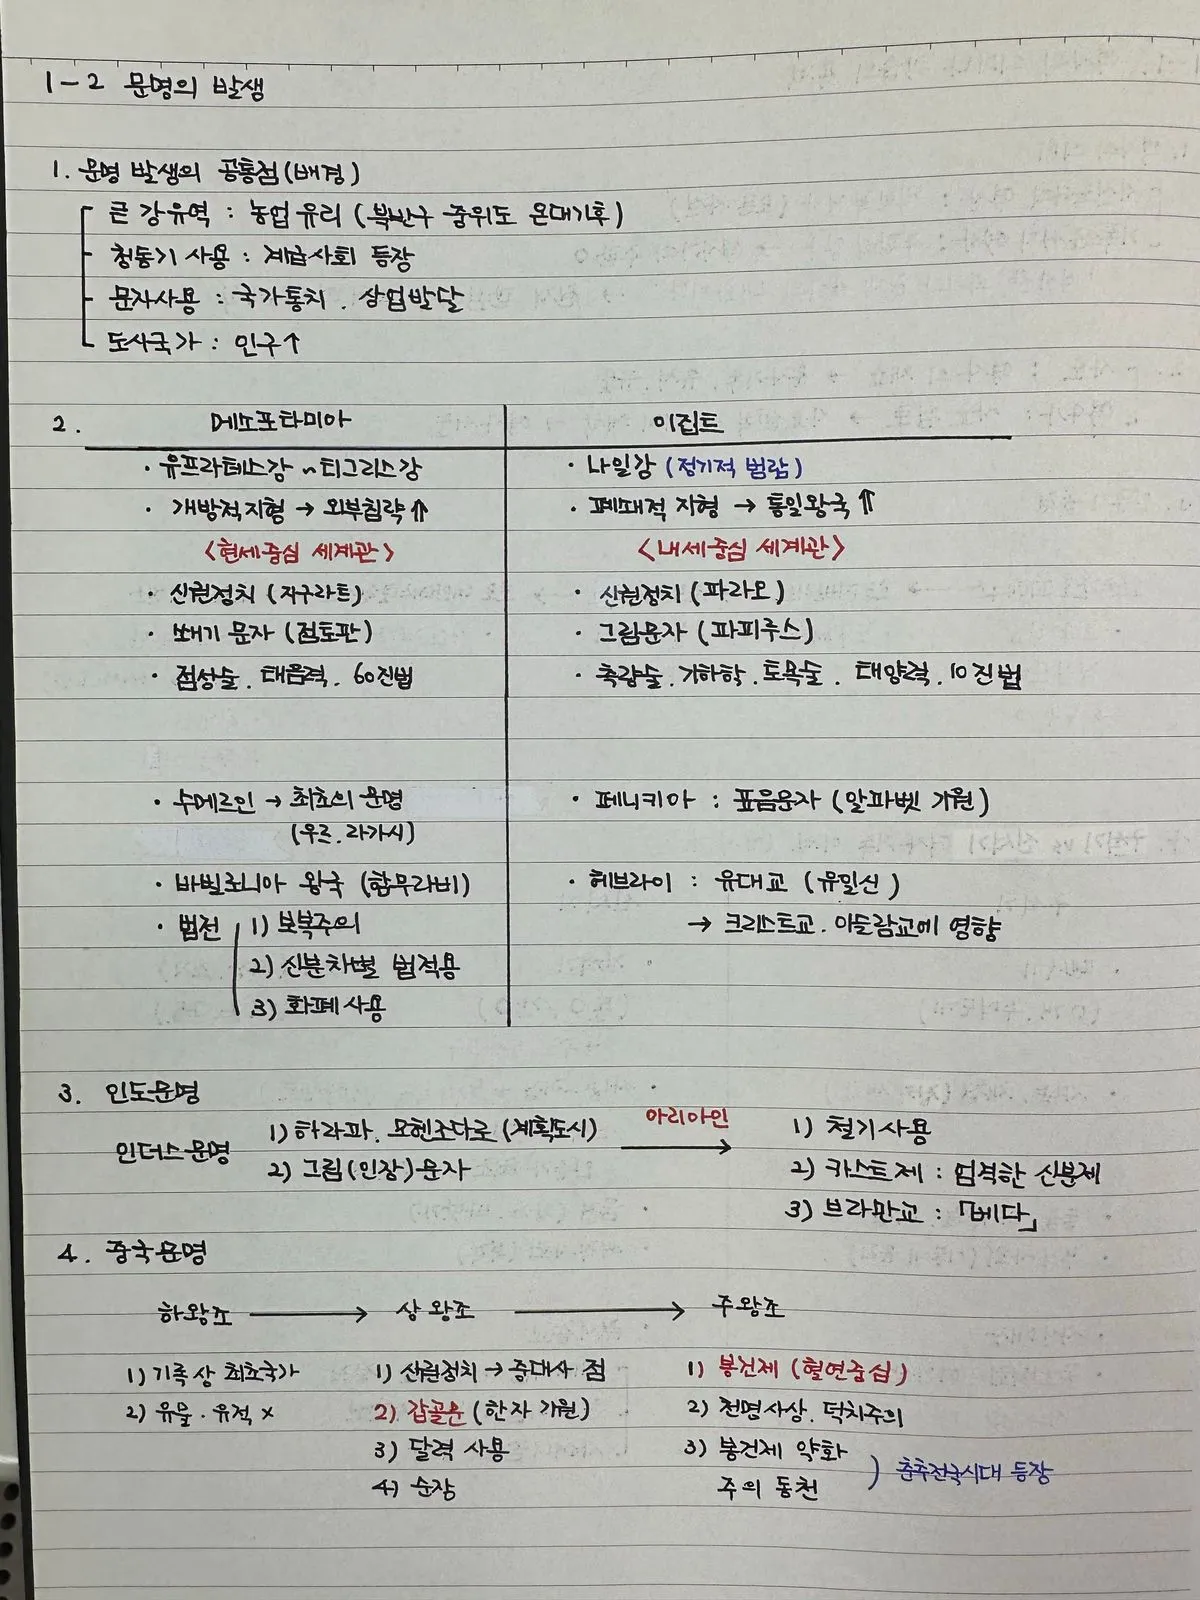 1-2 문명의 발생
1. 문명 발생의 공통점(배경)
큰 강유역 : 농업 유리 (북반구 중위도 온대기후)
청동기 사용 : 계급사회 등장
문자사용 : 국가통치 . 상업발달
도시국가 : 인구↑
2. 메소포타미아
· 유프라테스강 ~ 티그리스강
· 개방적지형 → 외부침략⇑
<현세중심 세계관>
· 신권정치 (지구라트)
· 쐐기 문자 (점토판)
· 점성술 . 태음력 . 60진법
· 수메르인 → 최초의 문명
(우르 . 라가시)
· 바빌로니아 왕국 (함무라비)
· 법전 1) 보복주의
2) 신분차별 법적용
3) 화폐사용
이집트
· 나일강 (정기적 범람)
· 폐쇄적 지형 → 통일왕국⇑
<내세중심 세계관>
· 신권정치 (파라오)
· 그림문자 (파피루스)
· 측량술 . 기하학 . 토목술 . 태양력 . 10진법
· 페니키아 : 표음문자 (알파벳 기원)
· 헤브라이 : 유대교 (유일신)
→ 크리스트교 . 이슬람교에 영향
3. 인도문명
인더스문명
1) 하라파. 모헨조다로 (계획도시)
2) 그림(인장)문자
아리아인 →
1) 철기사용
2) 카스트제 : 엄격한 신분제
3) 브라만교 : 「베다」
4. 중국문명
하왕조 → 상왕조 → 주왕조
1) 기록상 최초국가
2) 유물 · 유적 ×
1) 신권정치 → 증대사 점
2) 갑골문 (한자 기원)
3) 달력 사용
4) 순장
1) 봉건제 (혈연중심)
2) 천명사상. 덕치주의
3) 봉건제 약화
주의 동천
) 춘추전국시대 등장